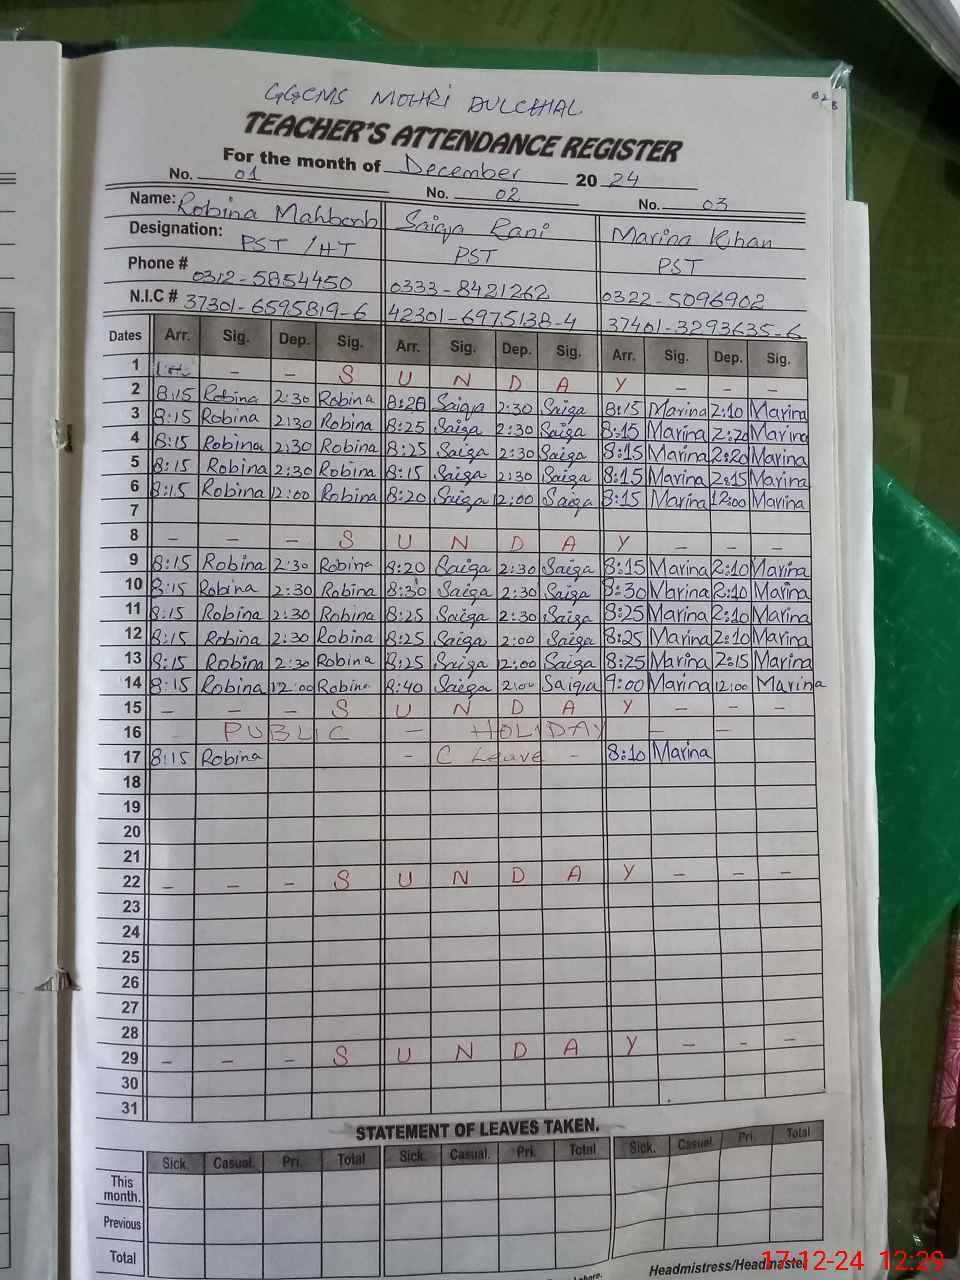 GGCMS MOHRI DULCHIAL
TEACHER'S ATTENDANCE REGISTER
For the month of December 2024
No. 01 No. 02 No. 03
Name: Robina Mahboob Saiqa Rani Marina Khan
Designation: PST / HT PST PST
Phone # 0312-5854450 0333-8421262 0322-5096902
N.I.C # 37301-6595819-6 42301-6975138-4 37401-3293635-6
Dates Arr. Sig. Dep. Sig. Arr. Sig. Dep. Sig. Arr. Sig. Dep. Sig.
1 - - S U N D A Y - - -
2 8:15 Robina 2:30 Robina 8:20 Saiqa 2:30 Saiqa 8:15 Marina 2:10 Marina
3 8:15 Robina 2:30 Robina 8:25 Saiqa 2:30 Saiqa 8:15 Marina 2:20 Marina
4 8:15 Robina 2:30 Robina 8:25 Saiqa 2:30 Saiqa 8:15 Marina 2:20 Marina
5 8:15 Robina 2:30 Robina 8:15 Saiqa 2:30 Saiqa 8:15 Marina 2:15 Marina
6 8:15 Robina 12:00 Robina 8:20 Saiqa 12:00 Saiqa 8:15 Marina 12:00 Marina
7
8 - - - S U N D A Y - - -
9 8:15 Robina 2:30 Robina 8:20 Saiqa 2:30 Saiqa 8:15 Marina 2:10 Marina
10 8:15 Robina 2:30 Robina 8:30 Saiqa 2:30 Saiqa 8:30 Marina 2:10 Marina
11 8:15 Robina 2:30 Robina 8:25 Saiqa 2:30 Saiqa 8:25 Marina 2:10 Marina
12 8:15 Robina 2:30 Robina 8:25 Saiqa 2:00 Saiqa 8:25 Marina 2:10 Marina
13 8:15 Robina 2:30 Robina 8:25 Saiqa 12:00 Saiqa 8:25 Marina 2:15 Marina
14 8:15 Robina 12:00 Robina 8:40 Saiqa 2:00 Saiqa 9:00 Marina 12:00 Marina
15 - - - S U N D A Y - - -
16 - PUBLIC - HOLIDAY - -
17 8:15 Robina - C Leave - 8:10 Marina
18
19
20
21
22 - - - S U N D A Y - - -
23
24
25
26
27
28
29 - - - S U N D A Y - - -
30
31
STATEMENT OF LEAVES TAKEN.
Sick. Casual. Pri. Total Sick. Casual. Pri. Total Sick. Casual. Pri. Total
This month.
Previous
Total
Headmistress/Headmaster
17-12-24 12:29